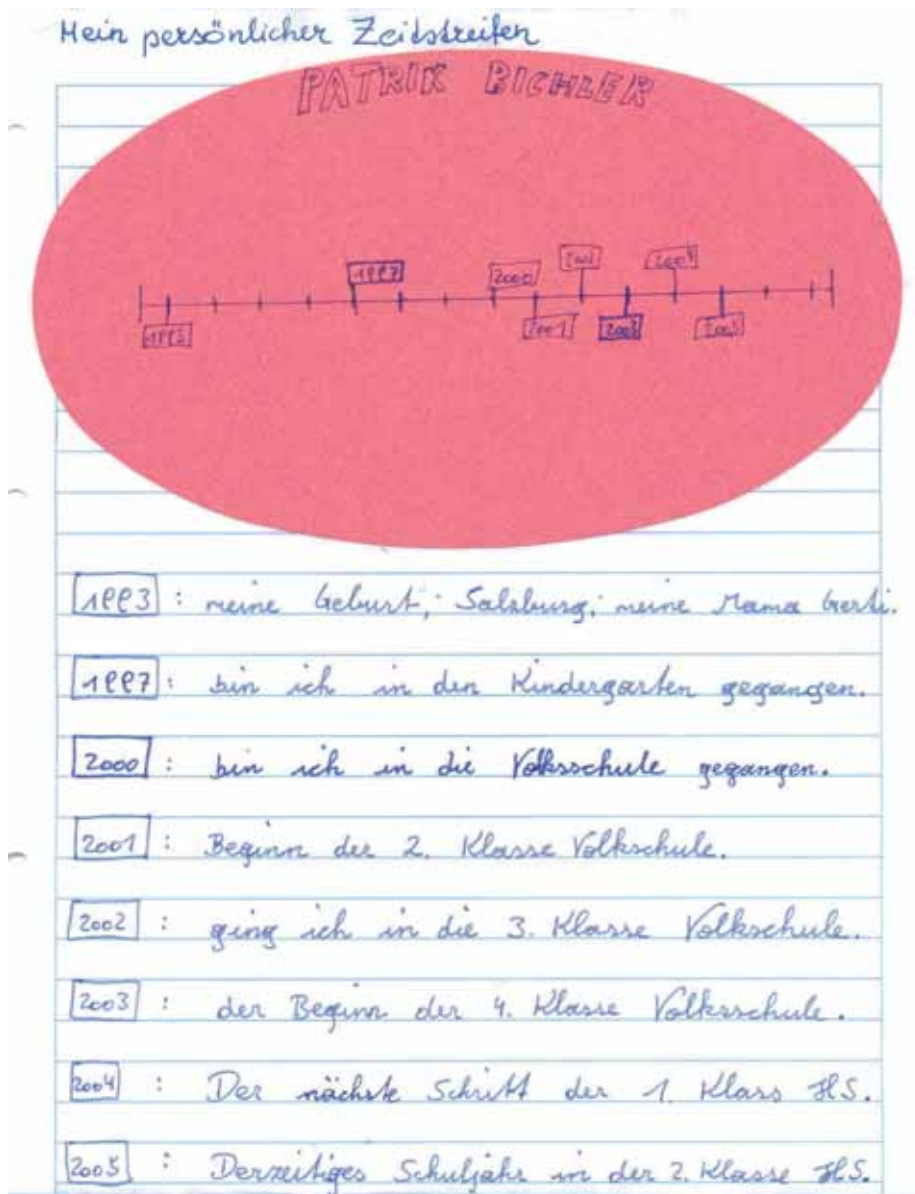 Mein persönlicher Zeitstreifen
PATRIK BICHLER
1997 2000 2002 2004
1993 2001 2003 2005
1993 : meine Geburt, Salzburg, meine Mama Gerti.
1997 : bin ich in den Kindergarten gegangen.
2000 : bin ich in die Volksschule gegangen.
2001 : Beginn der 2. Klasse Volkschule.
2002 : ging ich in die 3. Klasse Volkschule.
2003 : der Beginn der 4. Klasse Volksschule.
2004 : Der nächste Schritt der 1. Klass HS.
2005 : Derzeitiges Schuljahr in der 2. Klasse HS.